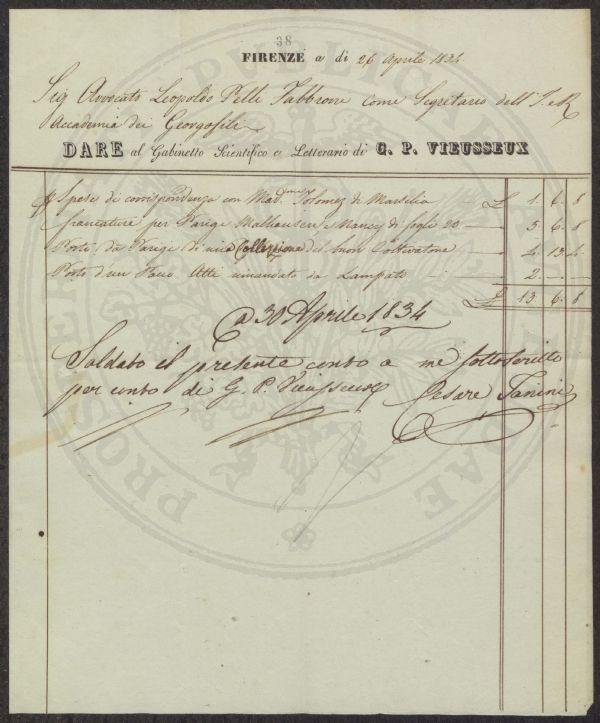 38
FIRENZE a dì 26 Aprile 1834
Sig Avvocato Leopoldo Pelli Fabbroni come Segretario dell' I. e R
Accademia dei Georgofili
DARE al Gabinetto Scientifico e Letterario di G. P. VIEUSSEUX
Spese di corrispondenza con Mad. di Marsilia £ 1. 6. 8
francature per Parigi Malhausen e Nancy di fogli 20 5. 6. 8
Porto da Parigi di una Collezione del buon Coltivatore 4. 13. 4
Porto d'un Pacco Atti rimandato da Lampato 2
£ 13. 6. 8
a 30 Aprile 1834
Saldato il presente conto a me sottoscritto
per conto di G. P. Vieusseux Cesare Tanini